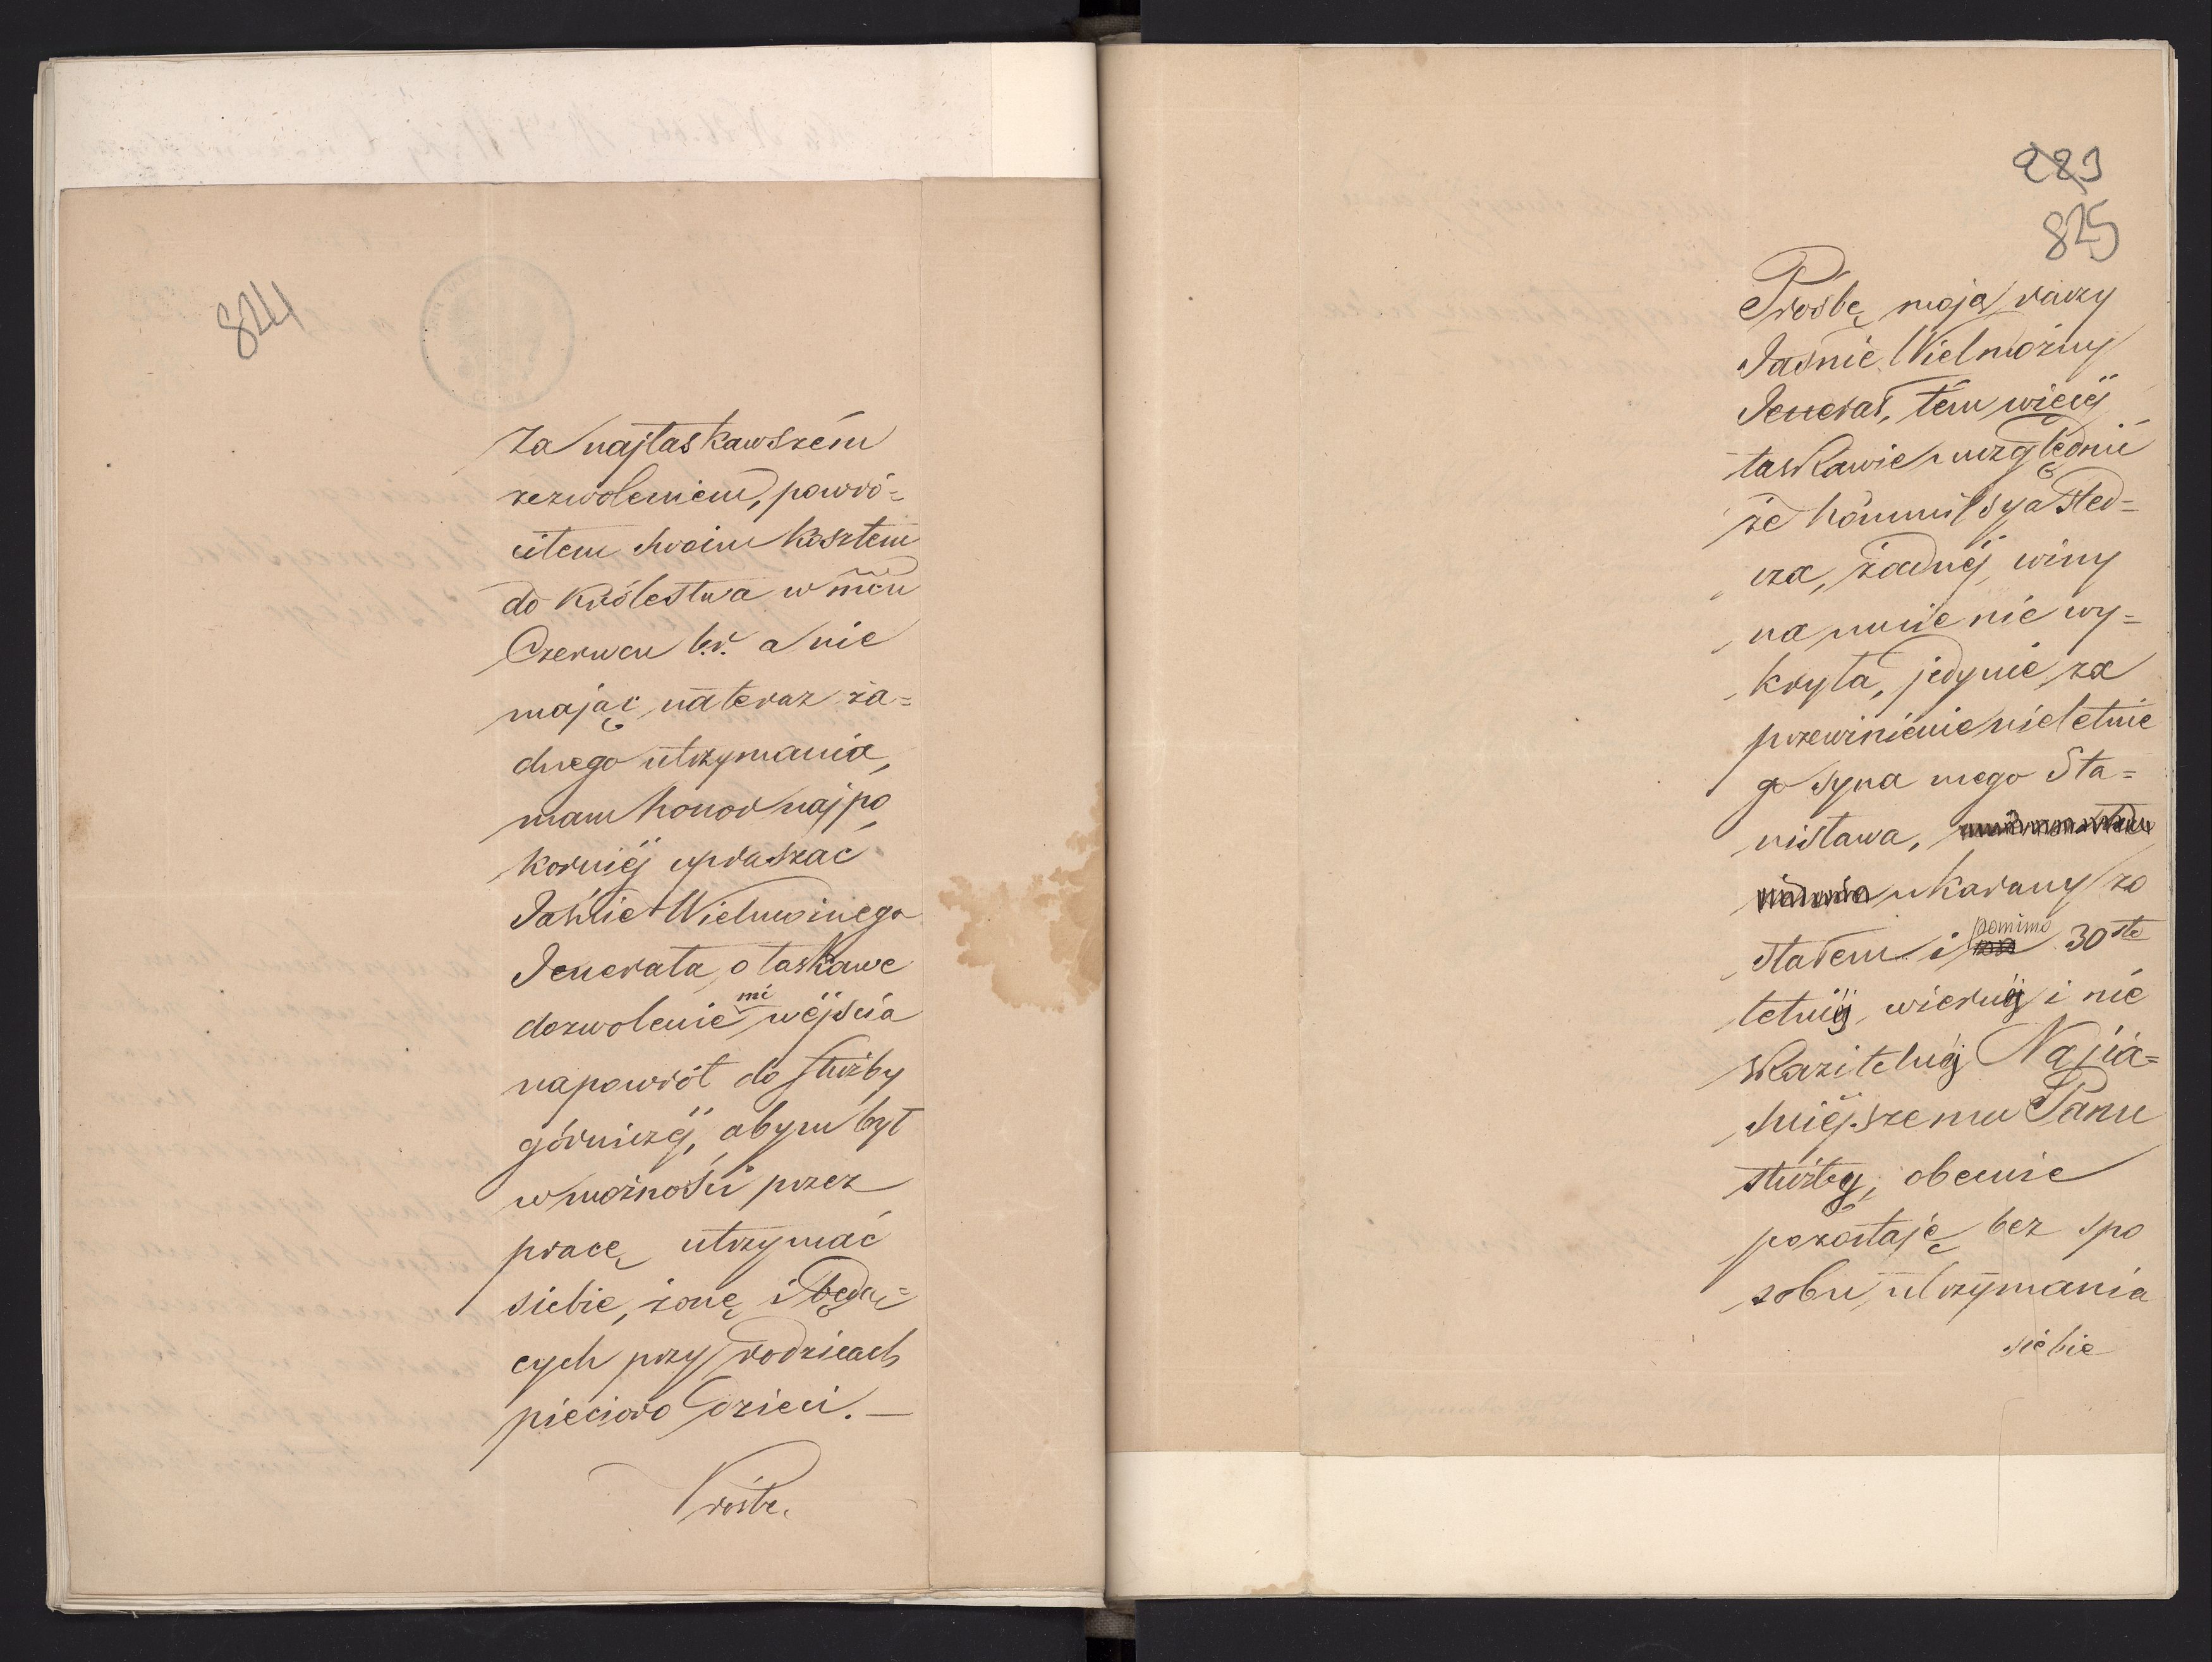 824
za najłaskawszém
zezwoleniem, powró=
ciłem swoim kosztem
do Królestwa w mcu
Czerwcu b.r. a nie
mając nateraz ża=
dnego utrzymania,
mam honor najpo
korniéj upraszać
Jaśnie Wielmożnego
Jenerała, o łaskawe
mi
dozwolenie wéjścia
napowrót do służby
górniczéj, abym był
w możności przez
pracę utrzymać
siebie, żonę i będą=
cych przy rodzicach
pięcioro dzieci. —
Prośbę
283
825
Prośbę moją raczy
Jaśnie Wielmożny
Jenerał, tém więcéj
łaskawie uwzględnić
że Kommissya śled=
cza, żadnéj winy
na mnie nie wy=
kryła, jedynie za
przewinienie nieletnie
go syna mego Sta=
nisława,
ukarany zo
pomimo
stałem i 30sto
letniéj, wiernéj i nie
skazitelnéj Najja=
śniéjszemu Panu
służby, obecnie
pozostaję bez spo
sobu utrzymania
siebie